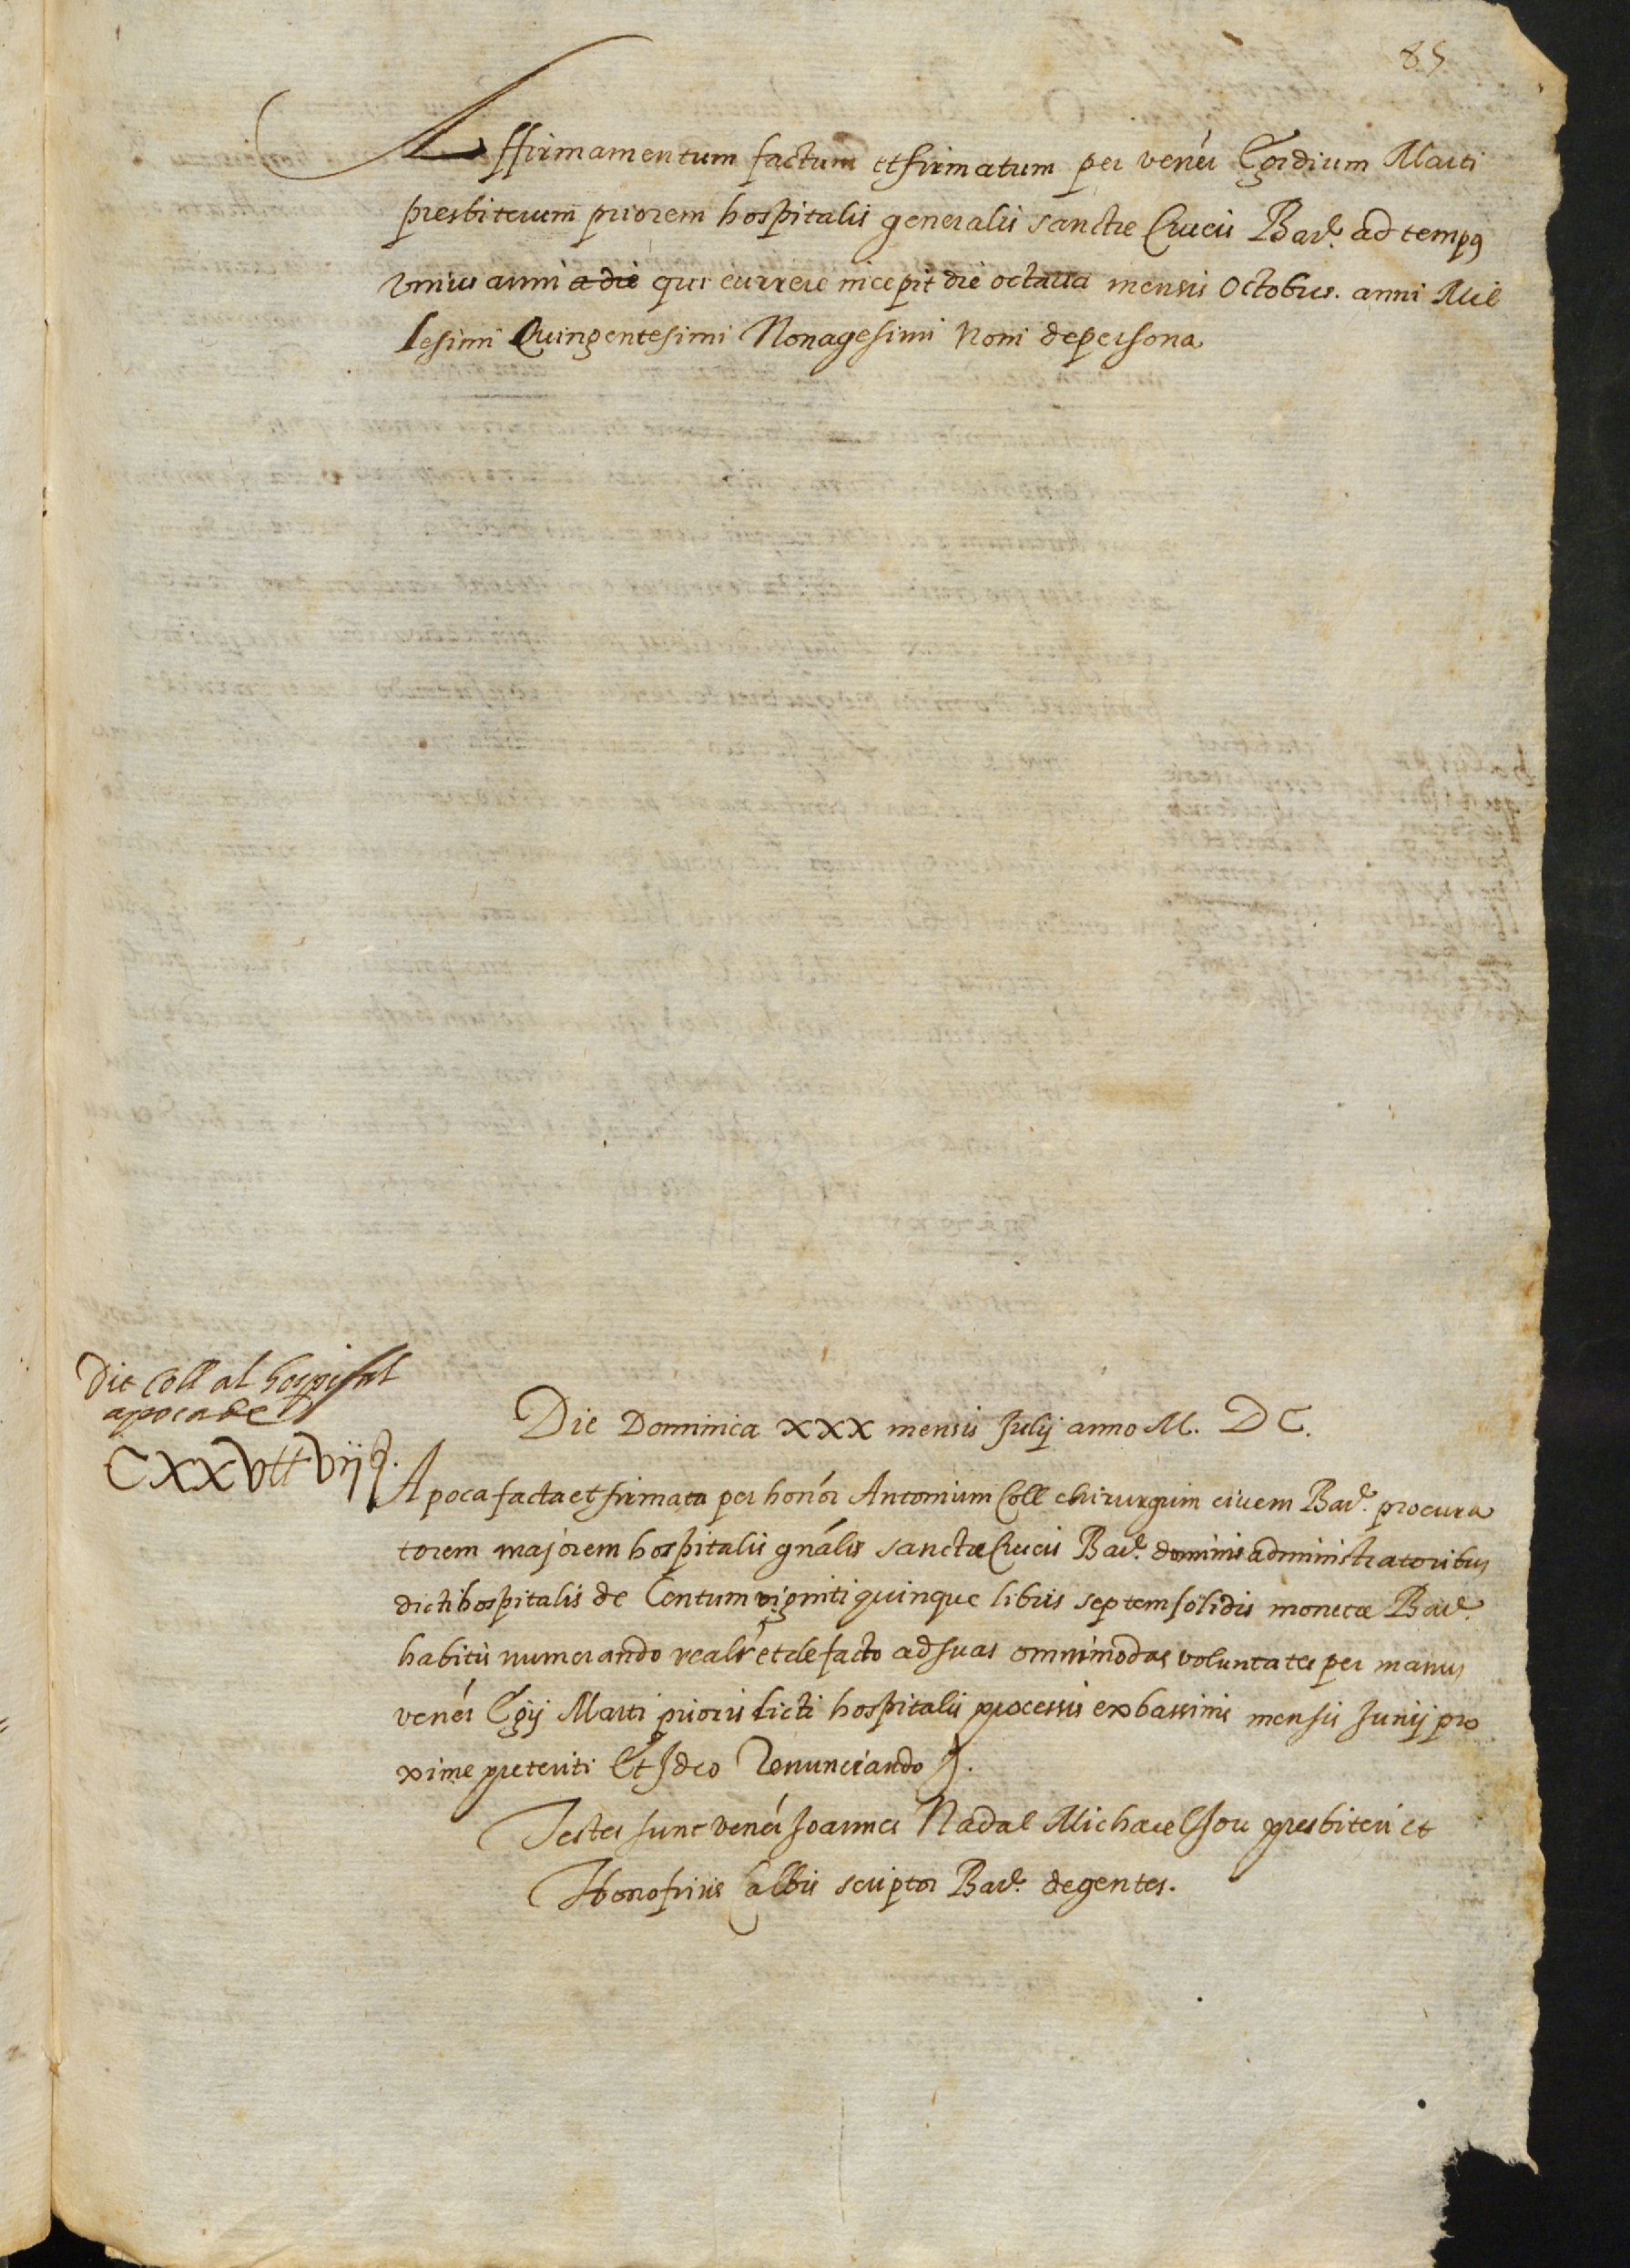 85
Affirmamentum factum et firmatum per vener Egidium Marti
presbiterum priorem hospitalis generalis sanctæ Crucis Barᵉ. ad tempꝰ
vnius anni a die qui currere incepit die octaua mensis Octobris. anni Mil
lesimi Quingentesimi Nonagesimi Noni de persona
Die Coll al hospital
apoca de
CXXV ℔ vij ꝭ.
Die Dominica xxx mensis Julij anno M. DC.
Apoca facta et firmata per honor Antonium Coll chirurgum ciuem Barᵉ. procura
torem majorem hospitalis gnalis sanctæ Crucis Barᵉ. dominis administratoribus
dicti hospitalis de Centum viginti quinque libris septem solidis monetæ Barᵉ.
habitis numerando realr et de facto ad suas omnimodas voluntates per manus
vener Egij Marti prioris dicti hospitalis processis ex bassinis mensis Junij pro
xime preteriti Et Ideo Renunciando &.
Testes sunt vener Joannes Nadal Michael Jou presbiteri et
Honofrius Calbis scriptor Barᵉ. degentes.